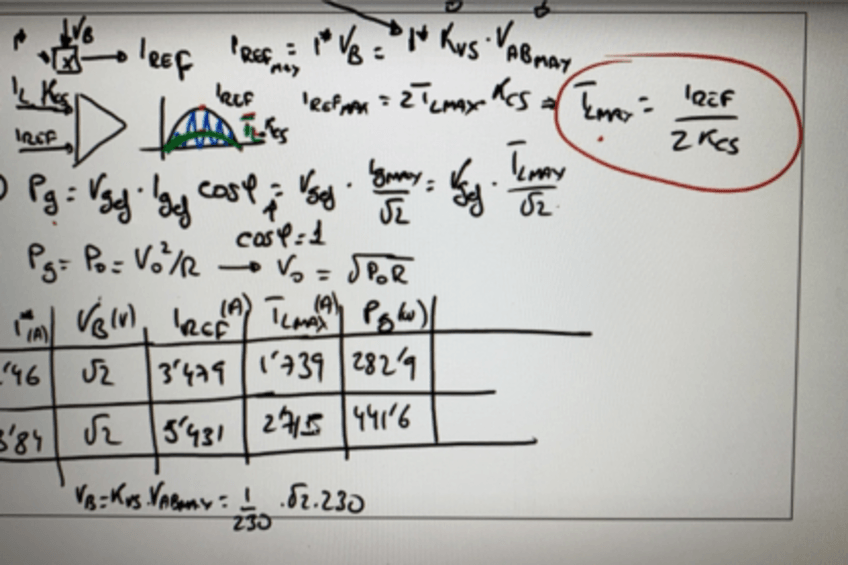 I* V_B
x → I_REF I_REF_MAX = I* V_B = I* K_VS · V_ABMAX
I_L K_CS
I_REF
I_REF
I_L K_CS
I_REFMAX = 2 I_LMAX · K_CS ⇒ I_LMAX = I_REF / 2 K_CS
P_g = V_gef · I_gef cos φ = V_gef · I_gMAX / √2 = V_gef · I_LMAX / √2
cos φ = 1
P_g = P_o = V_o²/R → V_o = √P_oR
I* (A) V_B (V) I_REF (A) I_LMAX (A) P_g (W)
'46 √2 3'479 1'739 282'9
3'84 √2 5'431 2'715 441'6
V_B = K_VS · V_ABMAX = 1/230 · √2 · 230